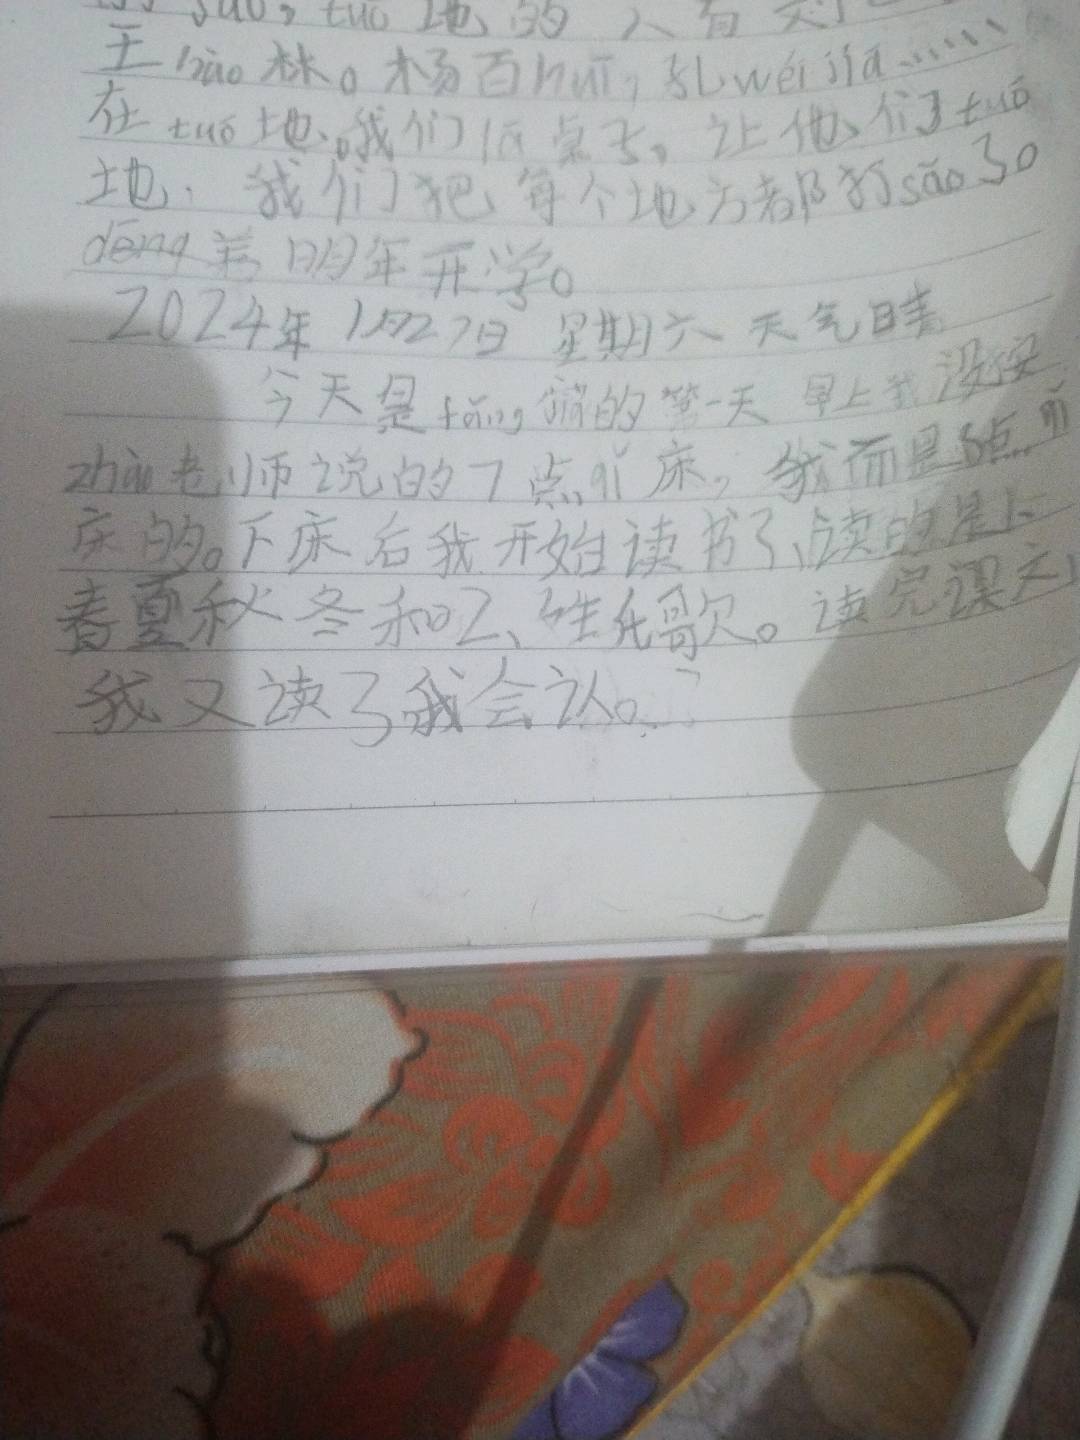 tuō地的人有
王hào林。杨百huī,孔wéijiā……
在tuō地。我们 点子。让他们tuō
地,我们把每个地方都打sǎo了。
děng着明年开学。
2024年1月27日 星期六 天气晴
今天是fàng 的第一天 早上我没按
zhào老师说的7点qǐ床,我而是8点qǐ
床的。下床后我开始读书了,读的是1、
春夏秋冬和2、姓氏歌。读完课文,
我又读了我会认。